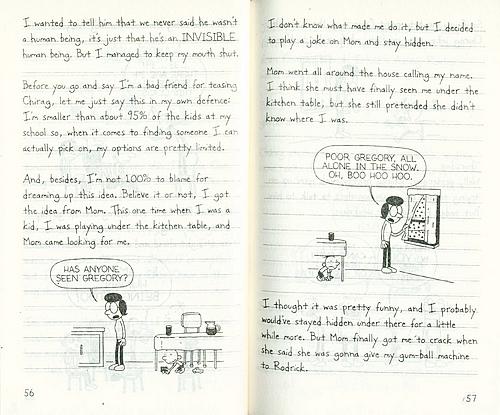 I wanted to tell him that we never said he wasn't
a human being, it's just that he's an INVISIBLE
human being. But I managed to keep my mouth shut.
Before you go and say I'm a bad friend for teasing
Chirag, let me just say this in my own defence:
I'm smaller than about 95% of the kids at my
school so, when it comes to finding someone I can
actually pick on, my options are pretty limited.
And, besides, I'm not 100% to blame for
dreaming up this idea. Believe it or not, I got
the idea from Mom. This one time when I was a
kid, I was playing under the kitchen table, and
Mom came looking for me.
HAS ANYONE
SEEN GREGORY?
56
I don't know what made me do it, but I decided
to play a joke on Mom and stay hidden.
Mom went all around the house calling my name.
I think she must have finally seen me under the
kitchen table, but she still pretended she didn't
know where I was.
POOR GREGORY, ALL
ALONE IN THE SNOW.
OH, BOO HOO HOO.
I thought it was pretty funny, and I probably
would've stayed hidden under there for a little
while more. But Mom finally got me to crack when
she said she was gonna give my gum-ball machine
to Rodrick.
57